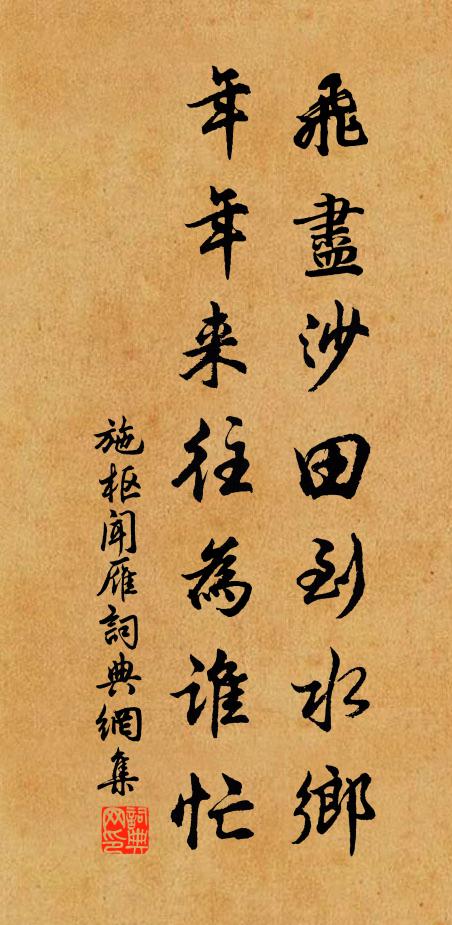 飛盡沙田到水鄉
年年来往為誰忙
施枢闻雁詞典網集
詞典
网印